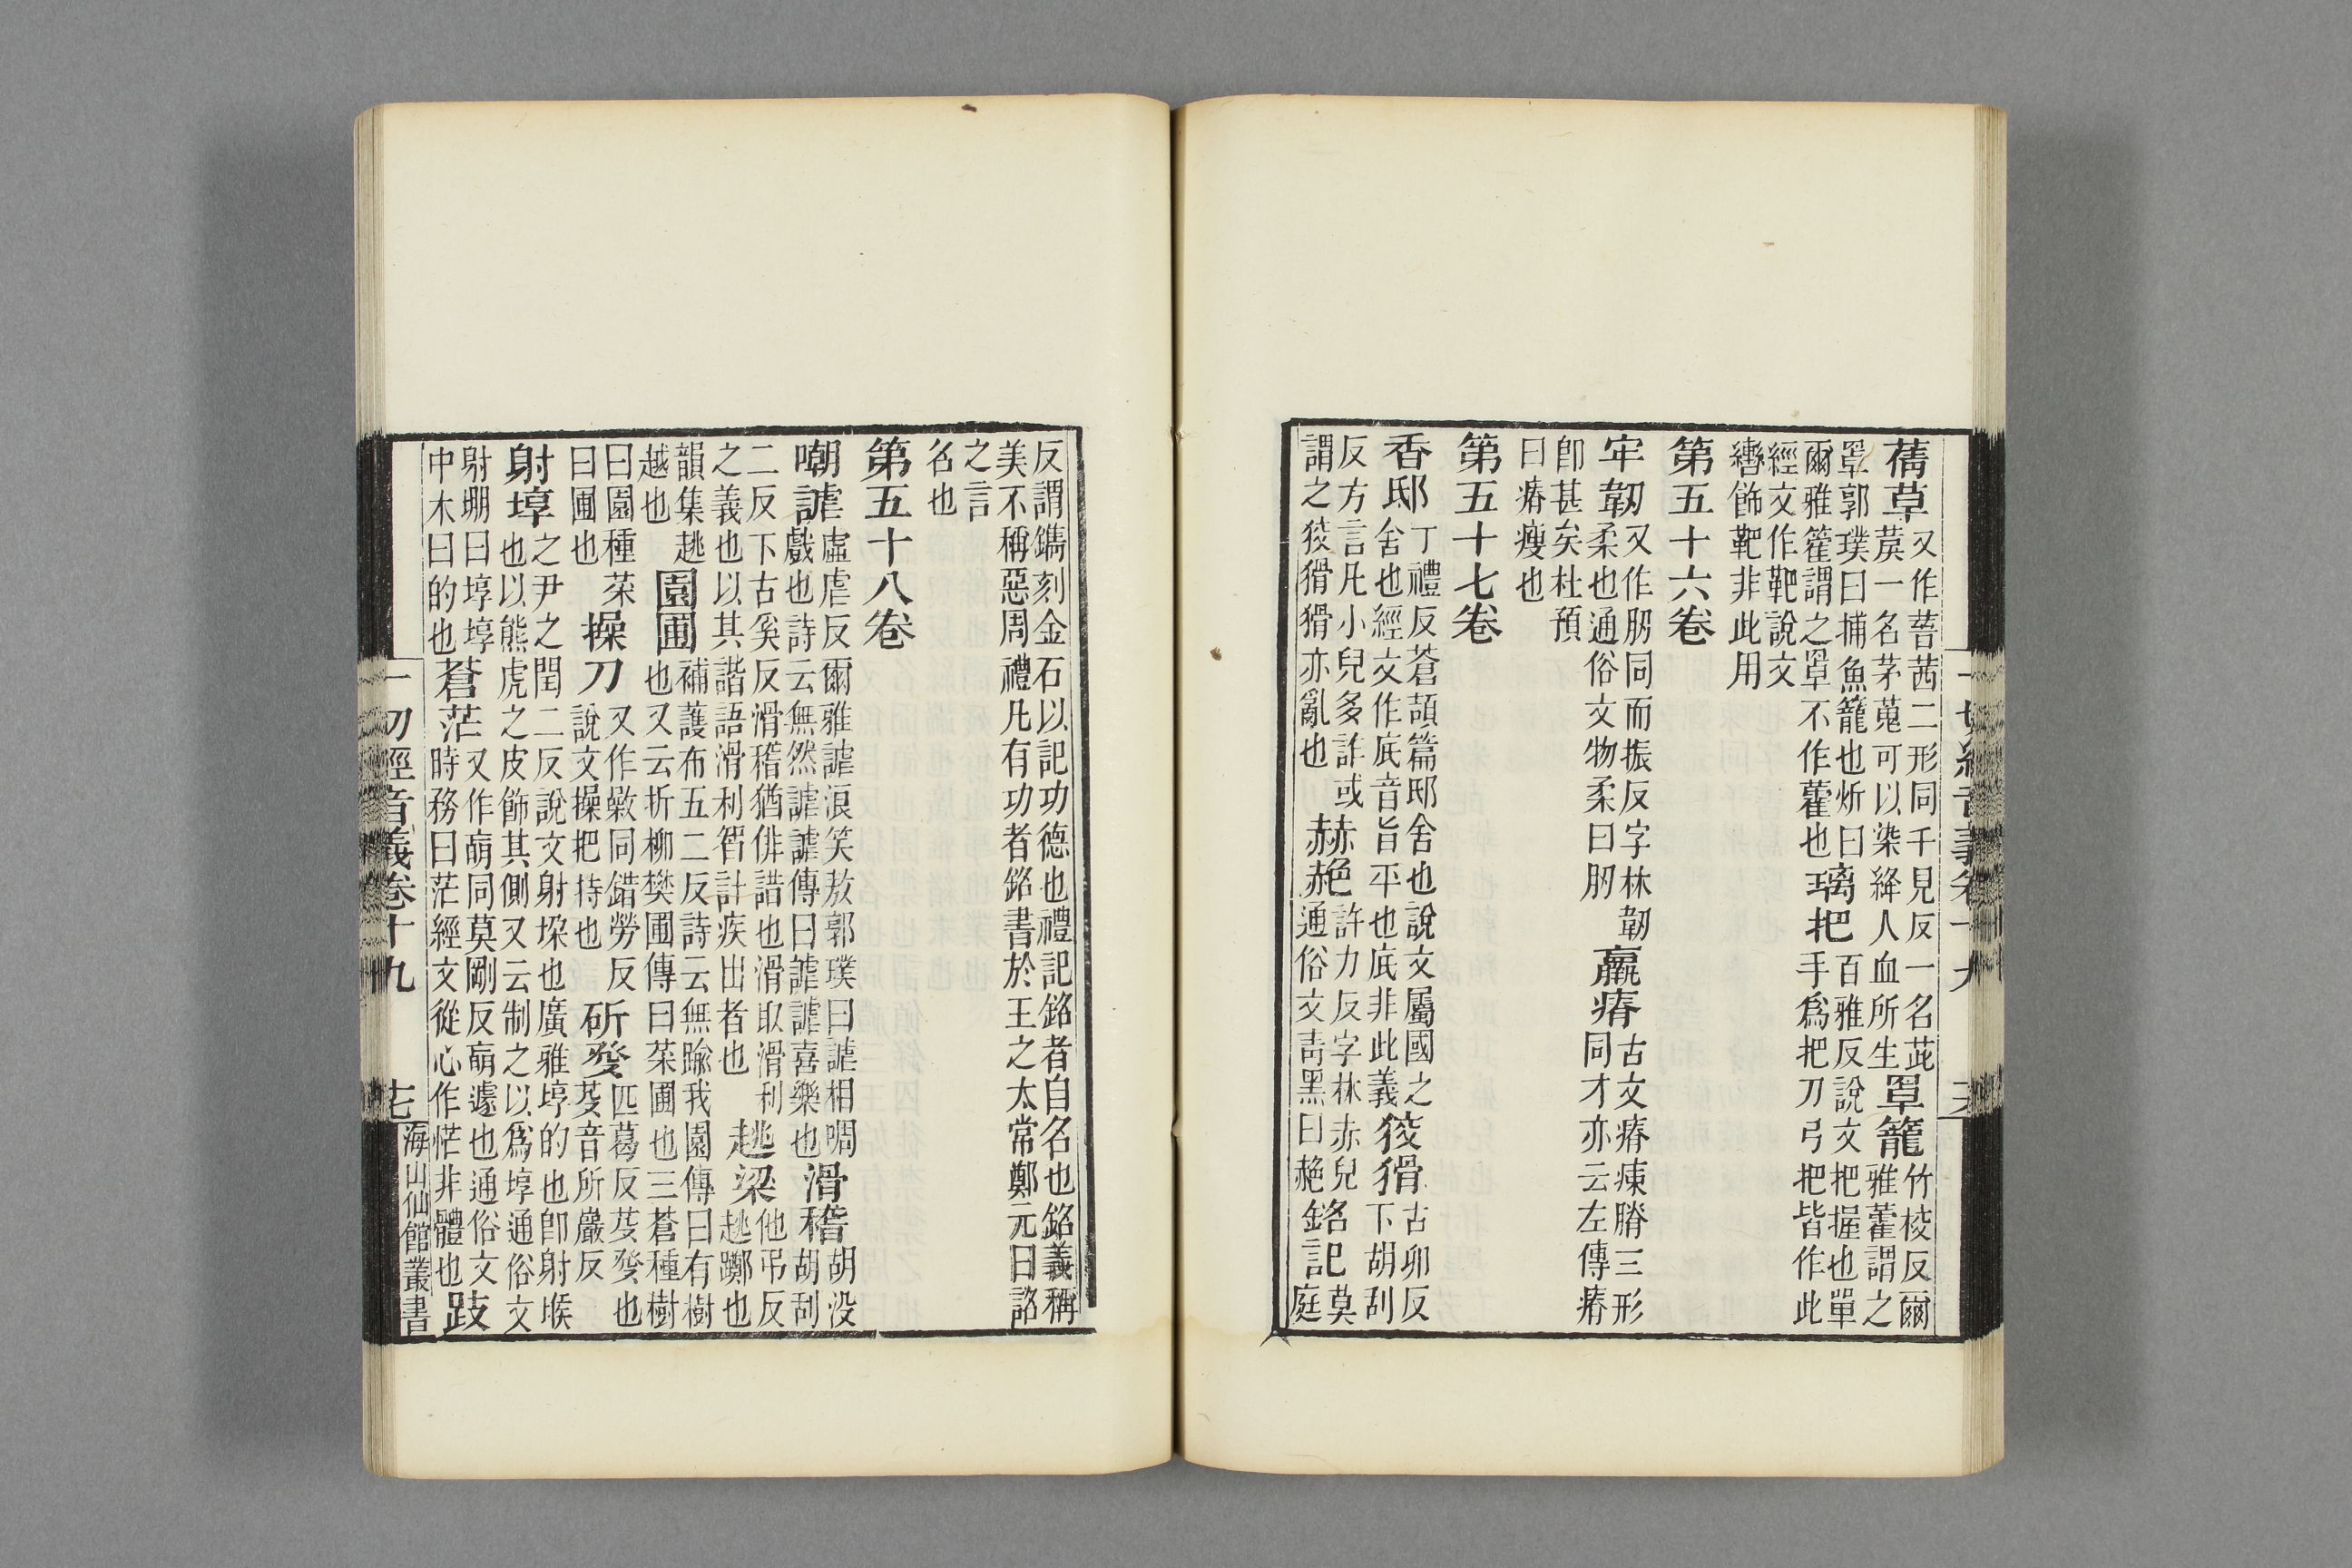 一切經音義卷十九
蒨草又作蒨茜二形同千見反一名茈莀一名茅蒐可以染絳人血所生罩籠竹棱反爾雅藿謂之
罩郭璞曰捕魚籠也炘曰爾雅籗謂之罩不作藿也璃把百雅反說文把握也單手爲把刀弓把皆作此
經文作靶說文轡飾靶非此用
第五十六卷
牢韌又作肕同而振反字林韌柔也通俗文物柔曰肕羸瘠古文瘠㾊膌三形同才亦云左傳瘠
卽甚矣杜預曰瘠瘦也
第五十七卷
香邸丁禮反蒼頡篇邸舍也說文屬國之舍也經文作底音旨平也底非此義狡猾古卯反下胡刮
反方言凡小兒多詐或謂之狡猾猾亦亂也赫赩許力反字林赤皃通俗文青黑曰赩銘記莫庭
反謂鐫刻金石以記功德也禮記銘者自名也銘義稱美不稱惡周禮凡有功者銘書於王之太常鄭元曰詺
之言名也
第五十八卷
嘲謔虛虐反爾雅謔浪笑敖郭璞曰謔相啁戲也詩云無然謔謔傳曰謔謔喜樂也滑稽胡没胡刮
二反下古奚反滑稽猶俳諧也滑取滑利之義也以其諧語滑利智計疾出者也趒梁他弔反趒躑也
韻集趒越也園圃補護布五二反詩云無踰我園傳曰有樹也又云折柳樊圃傳曰菜圃也三蒼種樹
曰園種菜曰圃也操刀又作㩰同錯勞反說文操把持也斫癹匹葛反芟癹也芟音所巖反
射埻之尹之閏二反說文射垜也廣雅埻的也卽射堠也以熊虎之皮飾其側又云制之以爲埻通俗文
射堋曰埻埻中木曰的也蒼茫又作萌同莫剛反萌遽也通俗文時務曰茫經文從心作恾非體也跂
一切經音義卷十九
十七
海山仙館叢書